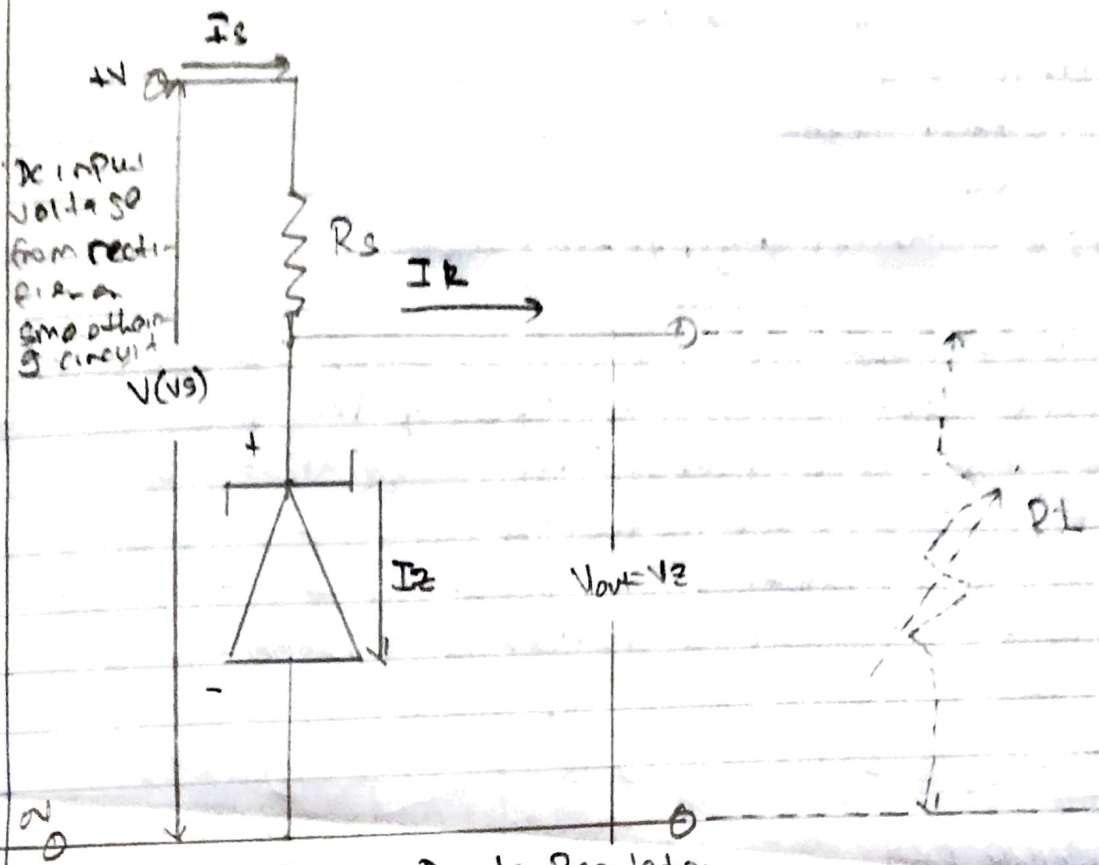 Is
+V
Dc input
voltage
from recti-
fier or
smoothin
g circuit
V(Vs)
Rs
IR
+
Iz
-
Vout=Vz
RL
0V